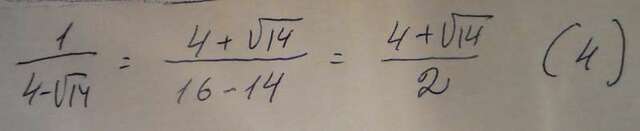 1/(4-√14) = (4+√14)/(16-14) = (4+√14)/2 (4)